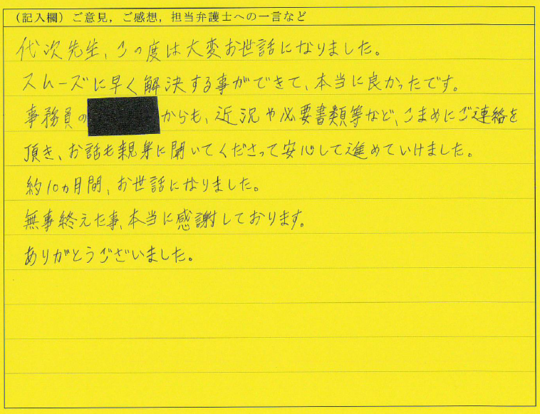 （記入欄）ご意見，ご感想，担当弁護士への一言など
代次先生、この度は大変お世話になりました。
スムーズに早く解決する事ができて、本当に良かったです。
事務員の
からも、近況や必要書類等など、こまめにご連絡を
頂き、お話も親身に聞いてくださって安心して進めていけました。
約10カ月間、お世話になりました。
無事終えた事、本当に感謝しております。
ありがとうございました。